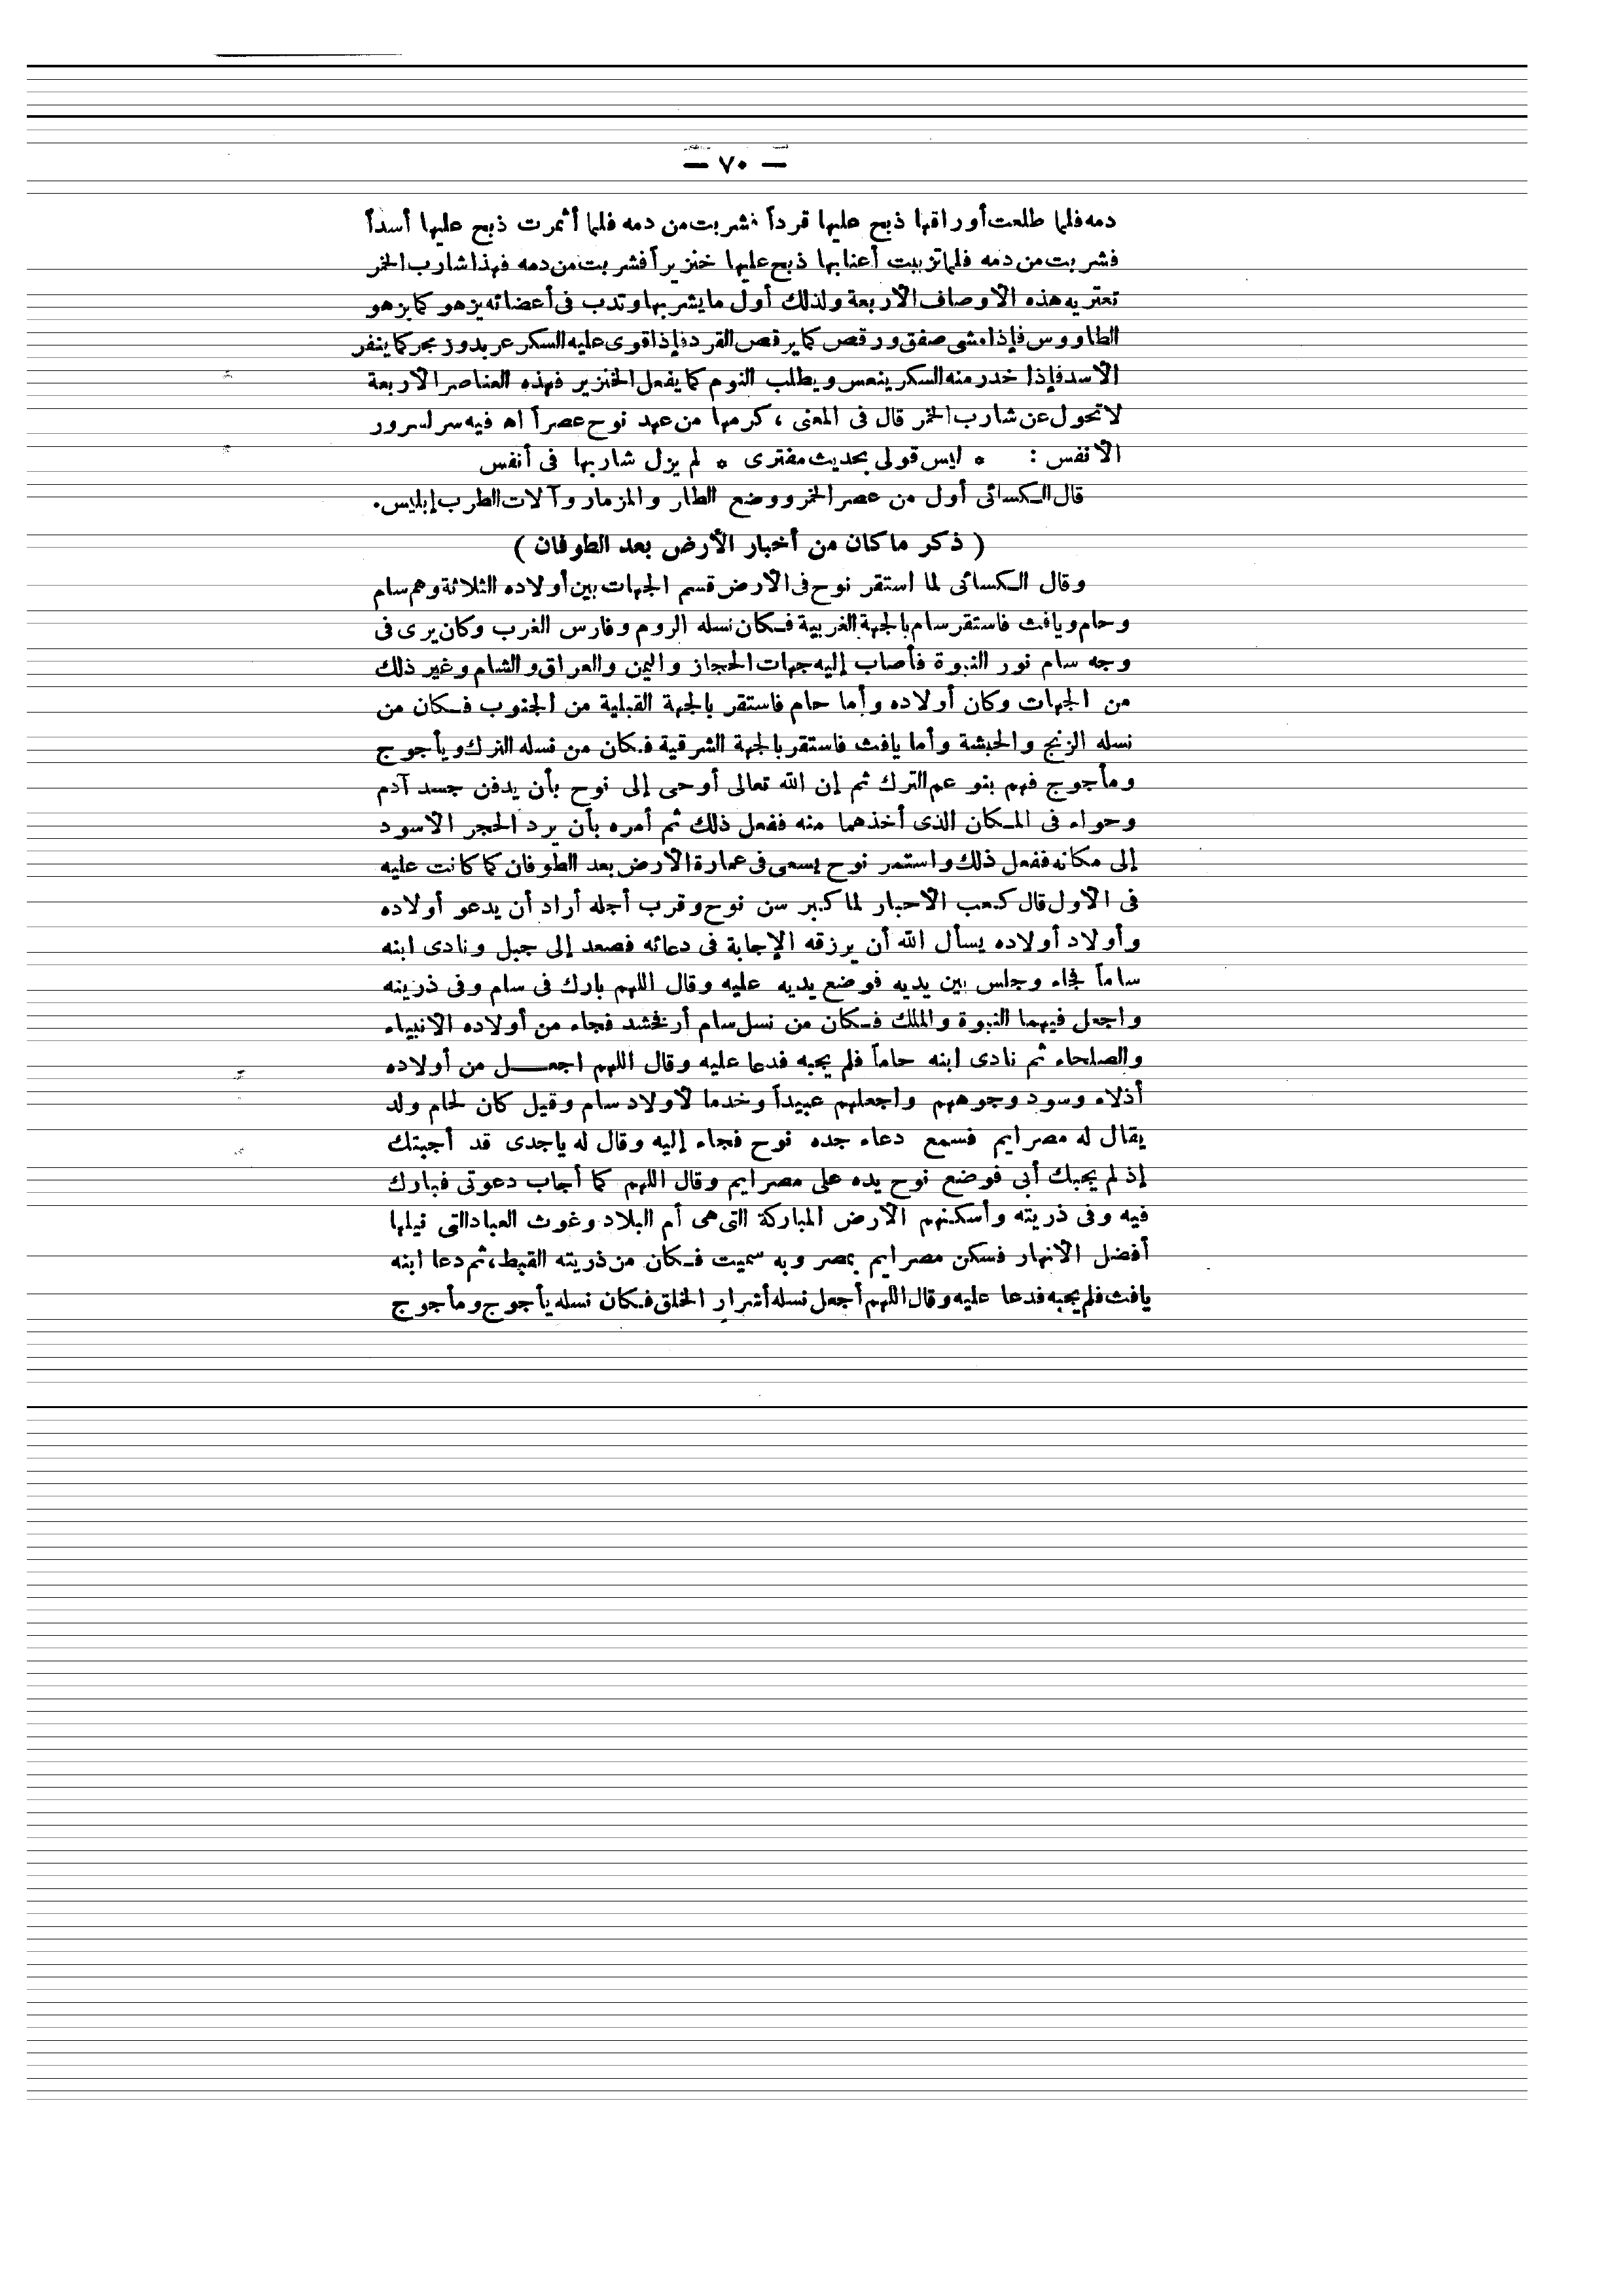 — ٧٠ —
دمه فلما طلعت أوراقها ذبح عليها قرداً فشربت من دمه فلما أثمرت ذبح عليها أسداً
فشربت من دمه فلما تزببت أعنابها ذبح عليها خنزيراً فشربت من دمه فهذا شارب الخمر
تعتريه هذه الأوصاف الأربعة ولذلك أول ما يشربها وتدب فى أعضائه يزهو كما يزهو
الطاووس فإذا مشى صفق ورقص كما يرقص القرد فإذا قوى عليه السكر عربد وزمجر كما ينفر
الاسد فإذا خدر منه السكر ينعس ويطلب النوم كما يفعل الخنزير فهذه العناصر الاربعة
لا تحول عن شارب الخمر قال فى المعنى ، كرمها من عهد نوح عصراً اه فيه سر لسرور
الانفس : * ليس قولى بحديث مفترى * لم يزل شاربها فى أنفس
قال الكسائى أول من عصر الخمر ووضع الطار والمزمار وآلات الطرب إبليس.
( ذكر ما كان من أخبار الأرض بعد الطوفان )
وقال الكسائى لما استقر نوح فى الارض قسم الجهات بين أولاده الثلاثة وهم سام
وحام ويافث فاستقر سام بالجهة الغربية فكان نسله الروم وفارس الغرب وكان يرى فى
وجه سام نور النبوة فأصاب إليه جهات الحجاز واليمن والعراق والشام وغير ذلك
من الجهات وكان أولاده وأما حام فاستقر بالجهة القبلية من الجنوب فكان من
نسله الزنج والحبشة وأما يافث فاستقر بالجهة الشرقية فكان من نسله الترك ويأجوج
ومأجوج فهم بنو عم الترك ثم إن الله تعالى أوحى إلى نوح بأن يدفن جسد آدم
وحواء فى المكان الذى أخذهما منه ففعل ذلك ثم أمره بأن يرد الحجر الاسود
إلى مكانه ففعل ذلك واستمر نوح يسعى فى عمارة الارض بعد الطوفان كما كانت عليه
فى الاول قال كعب الاحبار لما كبر سن نوح وقرب أجله أراد أن يدعو أولاده
وأولاد أولاده يسأل الله أن يرزقه الإجابة فى دعائه فصعد إلى جبل ونادى ابنه
ساماً فجاء وجلس بين يديه فوضع يديه عليه وقال اللهم بارك فى سام وفى ذريته
واجعل فيهما النبوة والملك فكان من نسل سام أرفخشد فجاء من أولاده الانبياء
والصلحاء ثم نادى ابنه حاماً فلم يجبه فدعا عليه وقال اللهم اجعل من أولاده
أذلاء وسود وجوههم واجعلهم عبيداً وخدما لاولاد سام وقيل كان لحام ولد
يقال له مصرايم فسمع دعاء جده نوح فجاء إليه وقال له ياجدى قد أجبتك
إذ لم يجبك أبى فوضع نوح يده على مصرايم وقال اللهم كما أجاب دعوتى فبارك
فيه وفى ذريته وأسكنهم الارض المباركة التى هى أم البلاد وغوث العباد التى نيلها
أفضل الانهار فسكن مصرايم بمصر وبه سميت فكان من ذريته القبط، ثم دعا ابنه
يافث فلم يجبه فدعا عليه وقال اللهم أجعل نسله أشرار الخلق فكان نسله يأجوج ومأجوج